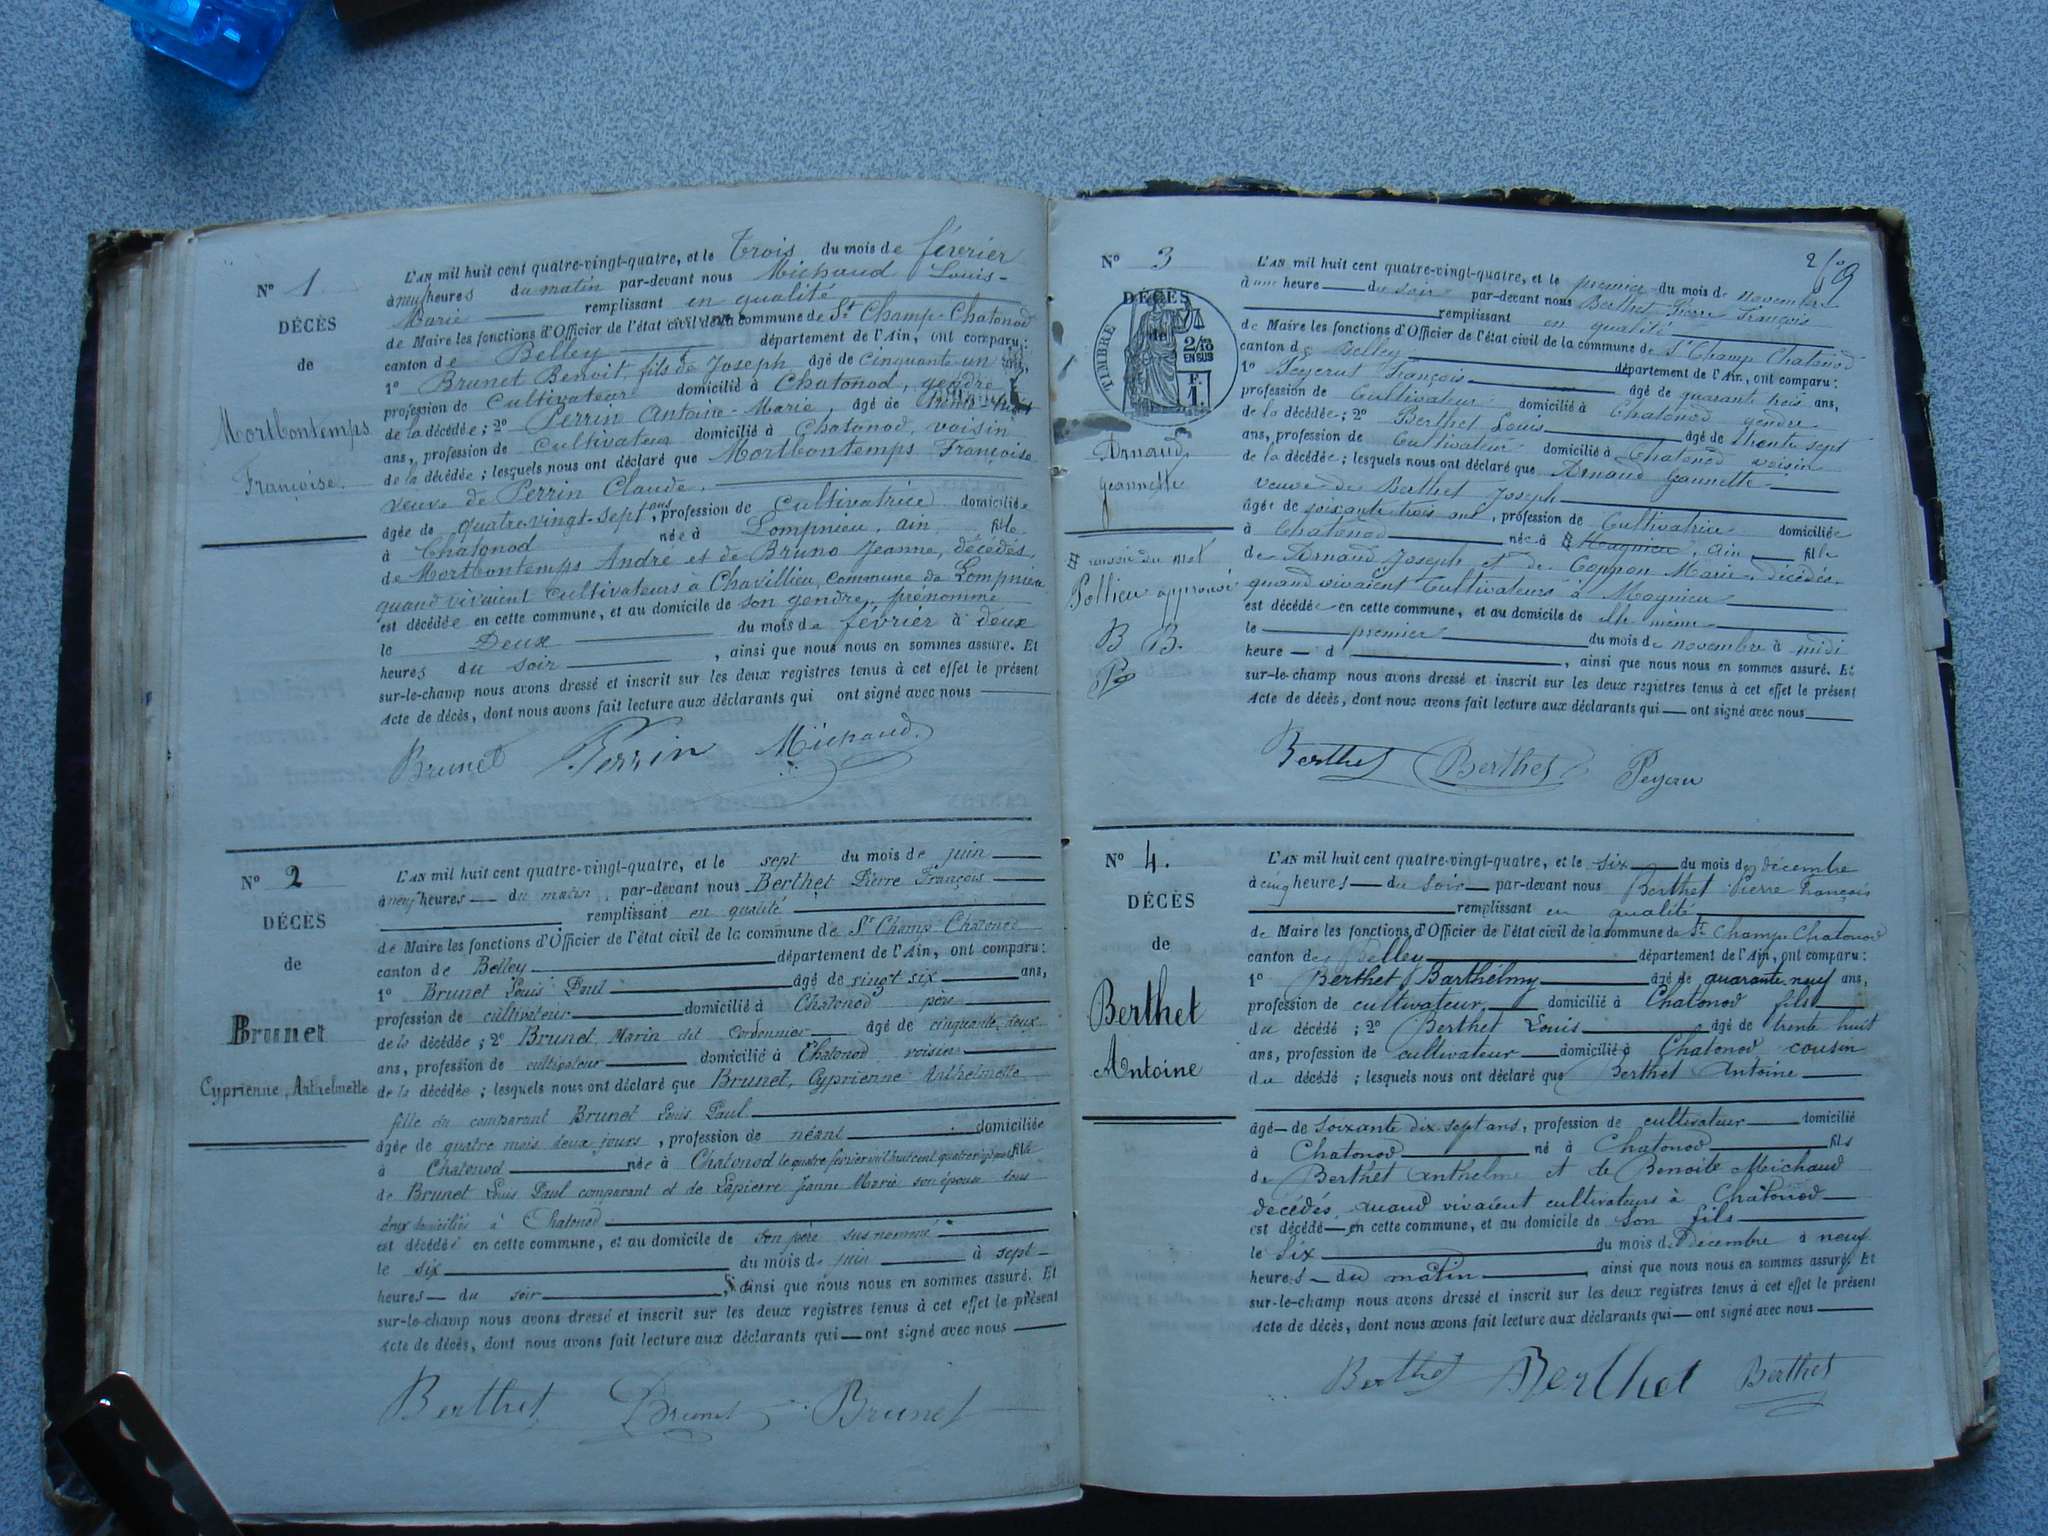 N° 1.
DÉCÈS
de
Mortbontemps
Françoise.
L'AN mil huit cent quatre-vingt-quatre, et le Trois du mois de février
à neuf heures du matin par-devant nous Michaud Louis-
Marie remplissant en qualité
de Maire les fonctions d'Officier de l'état civil de la commune de St Champ-Chatonod
canton de Belley département de l'Ain, ont comparu :
1° Brunet Benoit, fils de Joseph âgé de cinquante un ans,
profession de cultivateur domicilié à Chatonod, gendre
de la décédée ; 2° Perrin Antoine-Marie, âgé de trente-huit
ans, profession de cultivateur domicilié à Chatonod, voisin
de la décédée ; lesquels nous ont déclaré que Mortbontemps Françoise
veuve de Perrin Claude.
âgée de quatre-vingt-sept ans, profession de cultivatrice domiciliée
à Chatonod née à Lompnieu, ain, fille
de Mortbontemps André et de Bruno Jeanne, décédés,
quand vivaient cultivateurs à Chavillieu, commune de Lompnieu
est décédée en cette commune, et au domicile de son gendre, prénommé
le Deux du mois de février à deux
heures du soir, ainsi que nous nous en sommes assuré. Et
sur-le-champ nous avons dressé et inscrit sur les deux registres tenus à cet effet le présent
Acte de décès, dont nous avons fait lecture aux déclarants qui ont signé avec nous
Brunet Perrin Michaud.
N° 2
DÉCÈS
de
Brunet
Cyprienne, Anthelmette
L'AN mil huit cent quatre-vingt-quatre, et le sept du mois de juin
à neuf heures du matin, par-devant nous Berthet Pierre François
remplissant en qualité
de Maire les fonctions d'Officier de l'état civil de la commune de St Champ Chatonod
canton de Belley département de l'Ain, ont comparu :
1° Brunet Louis Paul âgé de vingt six ans,
profession de cultivateur domicilié à Chatonod père
de la décédée ; 2° Brunet Marin dit Cordonnier âgé de cinquante deux
ans, profession de cultivateur domicilié à Chatonod voisin
de la décédée ; lesquels nous ont déclaré que Brunet, Cyprienne Anthelmette
fille du comparant Brunet Louis Paul
âgée de quatre mois deux jours, profession de néant domiciliée
à Chatonod née à Chatonod le quatre fevrier mil huit cent quatre vingt quatre fille
de Brunet Louis Paul comparant et de Lapierre Jeanne Marie son épouse tous
deux domiciliés à Chatonod
est décédée en cette commune, et au domicile de son père susnommé
le six du mois de juin à sept
heures du soir, ainsi que nous nous en sommes assuré. Et
sur-le-champ nous avons dressé et inscrit sur les deux registres tenus à cet effet le présent
Acte de décès, dont nous avons fait lecture aux déclarants qui ont signé avec nous
Berthet Brunet Brunet
2
N° 3
DÉCÈS
de
TIMBRE
2/10
EN SUS
F.
1.
Arnaud
Jeannette
renvoi du mot
Pollieu approuvé
B B.
P
L'AN mil huit cent quatre-vingt-quatre, et le premier du mois de novembre
à une heure du soir par-devant nous Berthet Pierre François
remplissant en qualité
de Maire les fonctions d'Officier de l'état civil de la commune de St Champ Chatonod
canton de Belley département de l'Ain, ont comparu :
1° François âgé de quarante trois ans,
profession de Cultivateur domicilié à Chatonod gendre
de la décédée ; 2° Berthet Louis âgé de trente sept
ans, profession de Cultivateur domicilié à Chatonod voisin
de la décédée ; lesquels nous ont déclaré que Arnaud Jeannette
veuve de Berthet Joseph
âgée de soixante trois ans, profession de Cultivatrice domiciliée
à Chatonod née à Magnieu, ain fille
de Arnaud Joseph et de Coppon Marie, décédés
quand vivaient Cultivateurs à Magnieu
est décédée en cette commune, et au domicile de elle même
le premier du mois de novembre à midi
heure d, ainsi que nous nous en sommes assuré. Et
sur-le-champ nous avons dressé et inscrit sur les deux registres tenus à cet effet le présent
Acte de décès, dont nous avons fait lecture aux déclarants qui ont signé avec nous
Berthet Berthet
N° 4.
DÉCÈS
de
Berthet
Antoine
L'AN mil huit cent quatre-vingt-quatre, et le six du mois de décembre
à cinq heures du soir par-devant nous Berthet Pierre François
remplissant en qualité
de Maire les fonctions d'Officier de l'état civil de la commune de St Champ Chatonod
canton de Belley département de l'Ain, ont comparu :
1° Berthet Barthélmy âgé de quarante neuf ans,
profession de cultivateur domicilié à Chatonod fils
du décédé ; 2° Berthet Louis âgé de trente huit
ans, profession de cultivateur domicilié à Chatonod cousin
du décédé ; lesquels nous ont déclaré que Berthet Antoine
âgé de soixante dix sept ans, profession de cultivateur domicilié
à Chatonod né à Chatonod fils
de Berthet Anthelme et de Benoite Michaud
décédés quand vivaient cultivateurs à Chatonod
est décédé en cette commune, et au domicile de son fils
le six du mois de Décembre à neuf
heures du matin, ainsi que nous nous en sommes assuré. Et
sur-le-champ nous avons dressé et inscrit sur les deux registres tenus à cet effet le présent
Acte de décès, dont nous avons fait lecture aux déclarants qui ont signé avec nous
Berthet Berthet Berthet